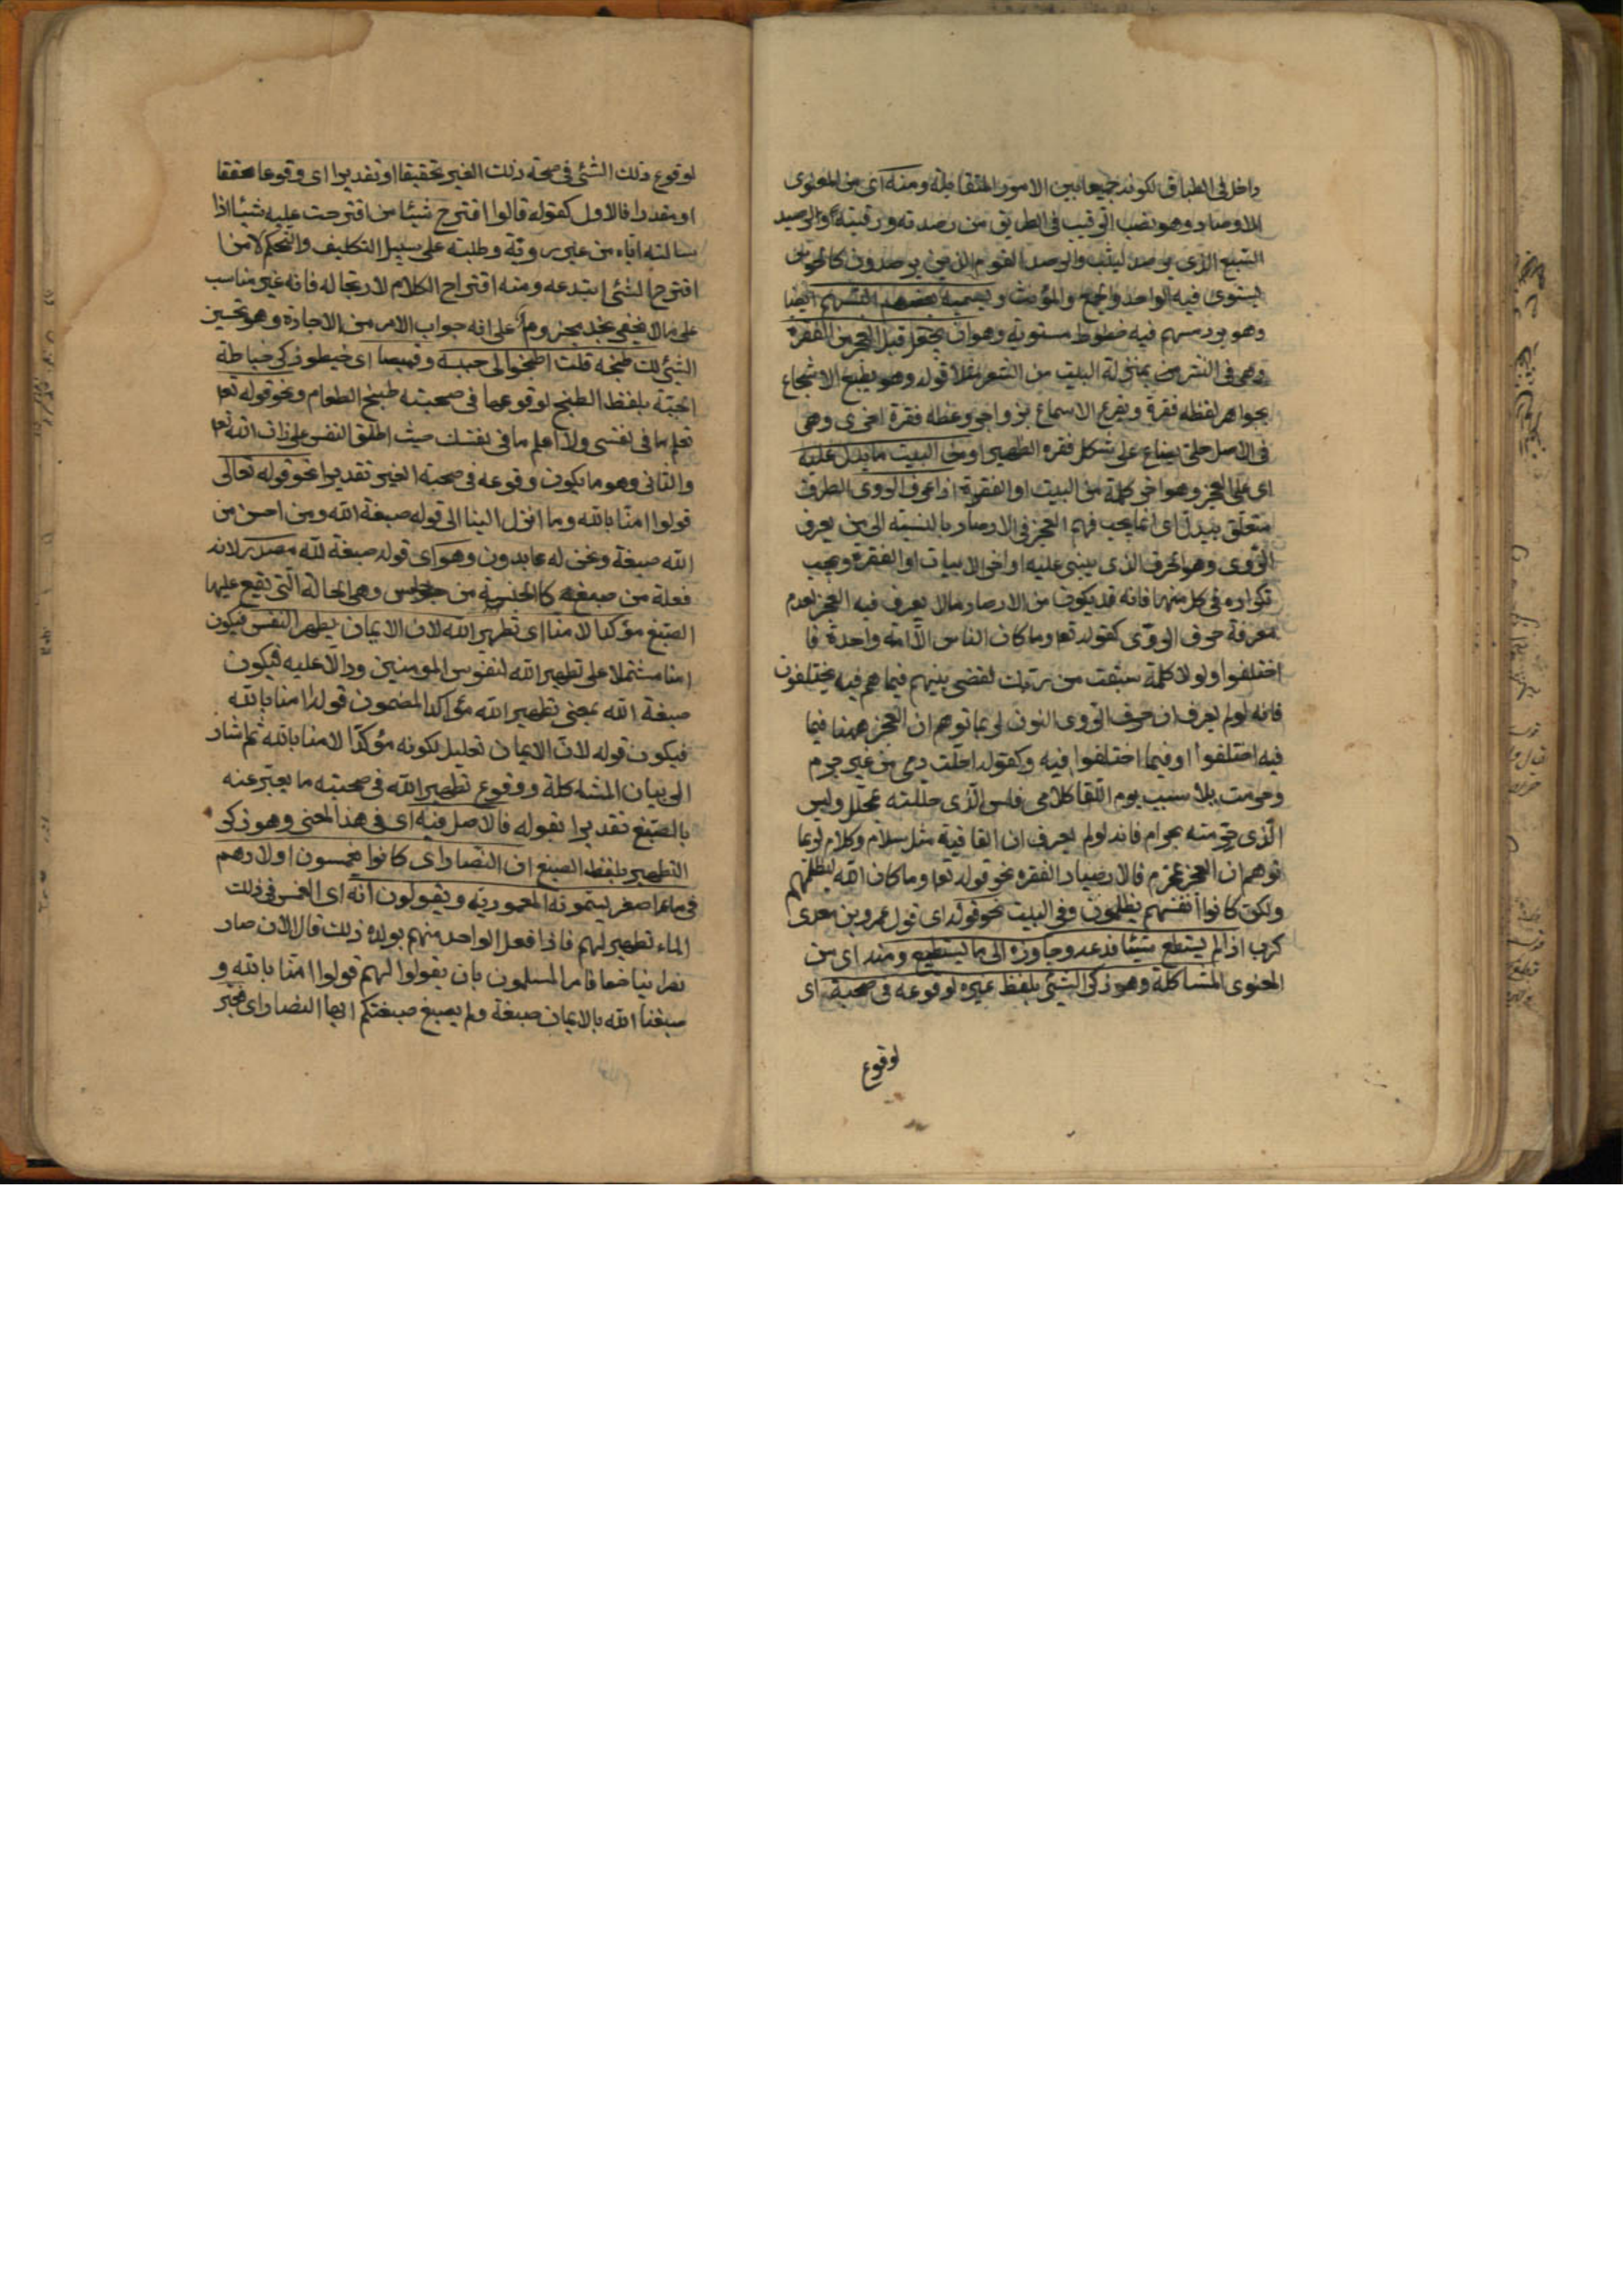 داخل فى الطباق لكونه جمعا بين الامور المتقابلة ومنه اى من المعنوى
الارصاد وهو نصب الرقيب فى الطريق من رصدته ورقبته والرصيد
السبع الذى يرصد ليثب والرصد القوم الذين يرصدون كالحرس
يستوى فيه الواحد والجمع والمؤنث ويسميه بعضهم التسهيم ايضا
وهو برد مسهم فيه خطوط مستوية وهو ان يجعل قبل العجز من الفقرة
وهى فى النثر بمنزلة البيت من الشعر مثلا قوله وهو يطبع الاسجاع
بجواهر لفظه فقرة ويقرع الاسماع بزواجر وعظه فقرة اخرى وهى
فى الاصل حلى يصاغ على شكل فقرة الظهر او من البيت ما يدل عليه
اى على العجز وهو اخر كلمة من البيت او الفقرة اذا عرف الروى الظرف
متعلق بيدل اى انما يجب فهم العجز فى الارصاد بالنسبة الى من يعرف
الروى وهو الحرف الذى يبنى عليه اواخر الابيات او الفقرة ويجب
تكراره فى كل منهما فانه قد يكون من الارصاد مالا يعرف فيه العجز لعدم
معرفة حرف الروى كقوله تعا وما كان الناس الا امة واحدة فا
اختلفوا ولولا كلمة سبقت من ربك لقضى بينهم فيما هم فيه يختلفون
فانه لو لم يعرف ان حرف الروى النون لربما توهم ان العجز ههنا فيما
فيه اختلفوا او فيما اختلفوا فيه وكقوله احلت دمى من غير جرم
وحرمت بلا سبب يوم اللقا كلامى فليس الذى حللته بمحلل وليس
الذى حرمته بحرام فانه لو لم يعرف ان القافية مثل سلام وكلام لربما
توهم ان العجز بمحرم فالارصاد فى الفقرة نحو قوله تعا وما كان الله ليظلمهم
ولكن كانوا انفسهم يظلمون وفى البيت نحو قوله اى قول عمرو بن معدى
كرب اذا لم يستطع شيئا فدعه وجاوزه الى ما يستطيع ومنه اى من
المعنوى المشاكلة وهو ذكر الشئ بلفظ غيره لوقوعه فى صحبته اى
لوقوع
لوقوع ذلك الشئ فى صحبة ذلك الغير تحقيقا او تقديرا اى وقوعا محققا
او مقدرا فالاول كقوله قالوا اقترح شيئا من اقترحت عليه شيئا اذا
سالته اياه من غير روية وطلبته على سبيل التكليف والتحكم لا من
اقترح الشئ ابتدعه ومنه اقتراح الكلام لارتجاله فانه غير مناسب
على ما لا يخفى نجد مجزوم على انه جواب الامر من الاجادة وهو تحسين
الشئ لك طبخه قلت اطبخوا لى جبة وقميصا اى خيطوا ذكر خياطة
الجبة بلفظ الطبخ لوقوعها فى صحبته طبخ الطعام ونحو قوله تعا
تعلم ما فى نفسى ولا اعلم ما فى نفسك حيث اطلق النفس على ذات الله تعا
والثانى وهو ما يكون وقوعه فى صحبة الغير تقديرا نحو قوله تعالى
قولوا امنا بالله وما انزل الينا الى قوله صبغة الله ومن احسن من
الله صبغة ونحن له عابدون وهو اى قوله صبغة الله مصدر لانه
فعلة من صبغ كالجلسة من جلس وهى الحالة التى يقع عليها
الصبغ مؤكد لامنا اى تطهير الله لان الايمان يطهر النفس فيكون
امنا مشتملا على تطهير الله لنفوس المومنين ودالا عليه فيكون
صبغة الله بمعنى تطهير الله مؤكدا لمضمون قوله امنا بالله
فيكون قوله لان الايمان تعليل لكونه مؤكدا لامنا بالله ثم اشار
الى بيان المشاكلة ووقوع تطهير الله فى صحبته ما يعبر عنه
بالصبغ تقديرا بقوله فالاصل فيه اى فى هذا المعنى وهو ذكر
التطهير بلفظ الصبغ ان النصارى كانوا يغمسون اولادهم
فى ماء اصفر يسمونه المعمودية ويقولون انه اى الغمس فى ذلك
الماء تطهير لهم فاذا فعل الواحد منهم بولده ذلك قال الان صار
نصرانيا حقا فامر المسلمون بان يقولوا لهم قولوا امنا بالله و
صبغنا الله بالايمان صبغة ولم يصبغ صبغتكم ايها النصارى فعبر